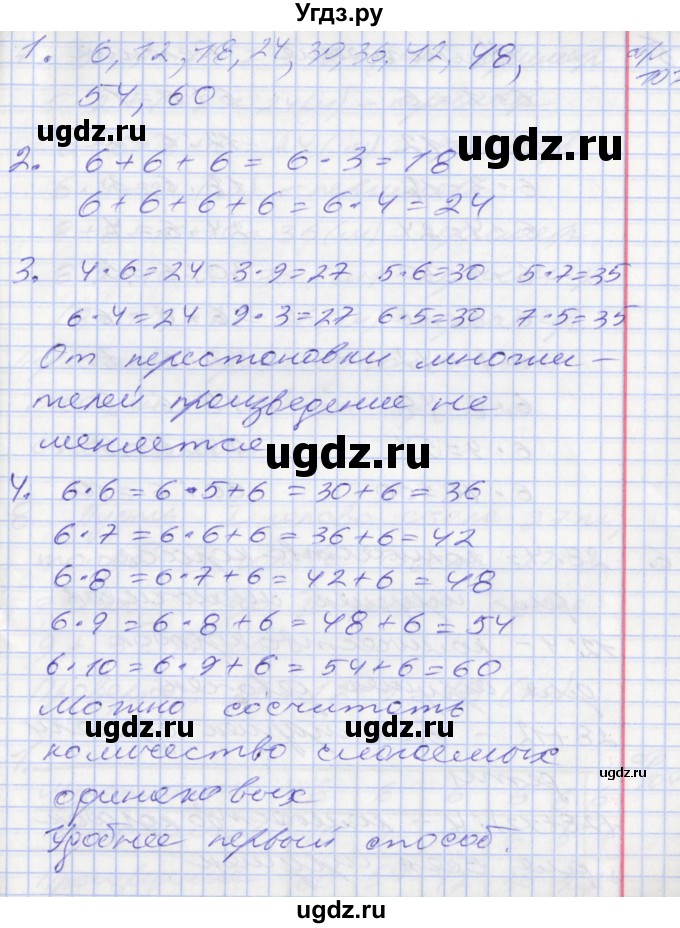 Угдз.ру
1. 6, 12, 18, 24, 30, 36, 42, 48,
54, 60
ugdz.ru
ugdz.ru
2. 6 + 6 + 6 = 6 · 3 = 18
6 + 6 + 6 + 6 = 6 · 4 = 24
3. 4 · 6 = 24 3 · 9 = 27 5 · 6 = 30 5 · 7 = 35
6 · 4 = 24 9 · 3 = 27 6 · 5 = 30 7 · 5 = 35
От перестановки множи-
телей произведение не
меняется
ugdz.ru
4. 6 · 6 = 6 · 5 + 6 = 30 + 6 = 36
6 · 7 = 6 · 6 + 6 = 36 + 6 = 42
6 · 8 = 6 · 7 + 6 = 42 + 6 = 48
6 · 9 = 6 · 8 + 6 = 48 + 6 = 54
6 · 10 = 6 · 9 + 6 = 54 + 6 = 60
Можно сосчитать
ugdz.ru ugdz.ru
количество слагаемых
ugdz.ru
одинаковых
Удобнее первый способ.
ugdz.ru